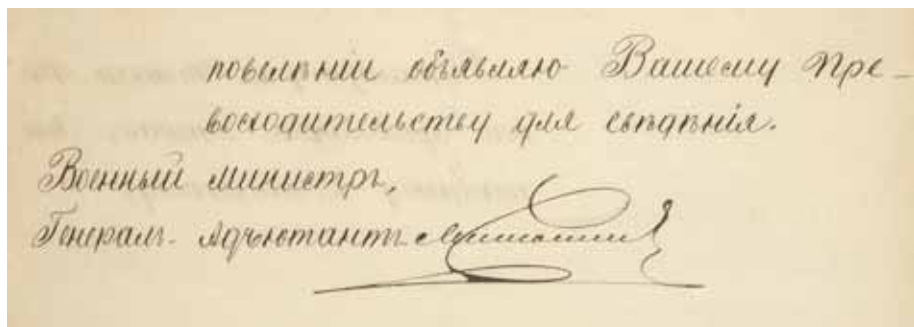 повелѣніи объявляю Вашему Пре-
восходительству для свѣдѣнія.
Военный Министръ,
Генералъ-Адъютантъ Милютинъ